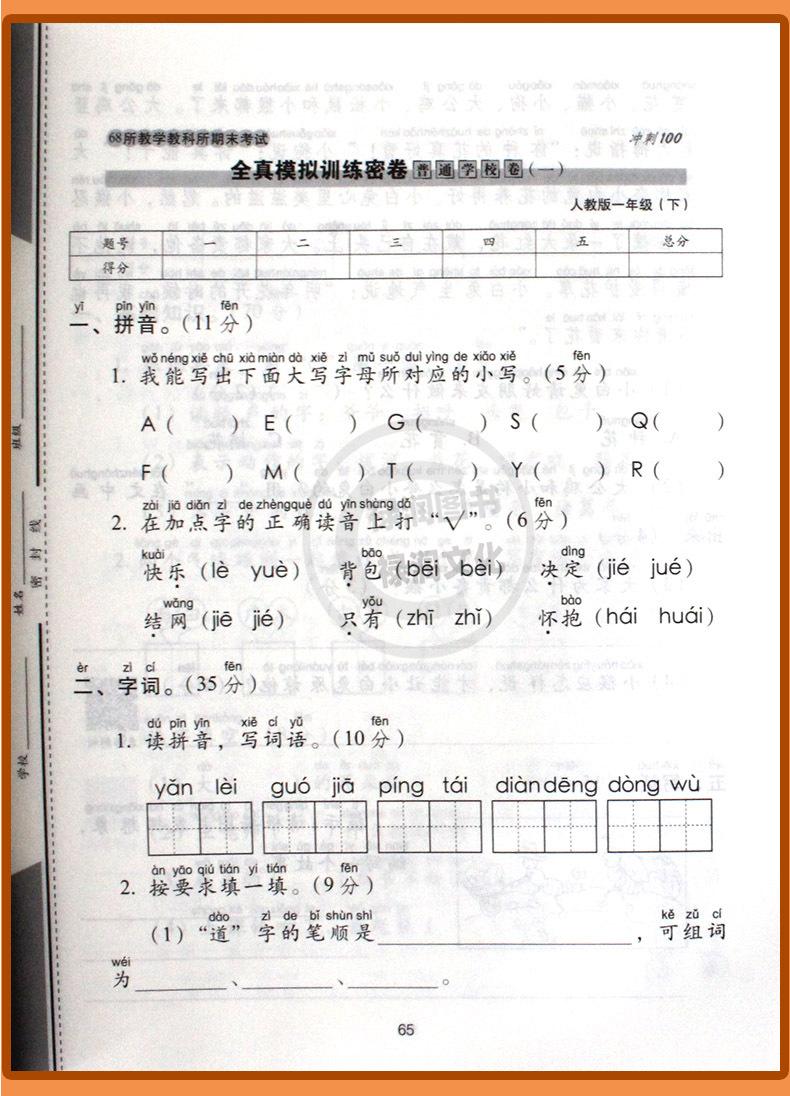 68所教学教科所期末考试
冲刺100
全真模拟训练密卷 普通学校卷 (一)
人教版一年级(下)
题号 一 二 三 四 五 总分
得分
yī pīn yīn fēn
一、拼音。(11分)
wǒ néng xiě chū xià miàn dà xiě zì mǔ suǒ duì yìng de xiǎo xiě fēn
1. 我能写出下面大写字母所对应的小写。(5分)
A ( ) E ( ) G ( ) S ( ) Q ( )
F ( ) M ( ) T ( ) Y ( ) R ( )
zài jiā diǎn zì de zhèng què dú yīn shàng dǎ fēn
2. 在加点字的正确读音上打“√”。(6分)
kuài bāo dìng
快乐 (lè yuè) 背包 (bēi bèi) 决定 (jié jué)
wǎng yǒu bào
结网 (jiē jié) 只有 (zhī zhǐ) 怀抱 (hái huái)
èr zì cí fēn
二、字词。(35分)
dú pīn yīn xiě cí yǔ fēn
1. 读拼音，写词语。(10分)
yǎn lèi guó jiā píng tái diàn dēng dòng wù
àn yāo qiú tián yi tián fēn
2. 按要求填一填。(9分)
dào zì de bǐ shùn shì kě zǔ cí
(1) “道”字的笔顺是____________，可组词
wéi
为________、________、________。
65
学校
姓名
班级
密封线
禄润图书
禄润文化